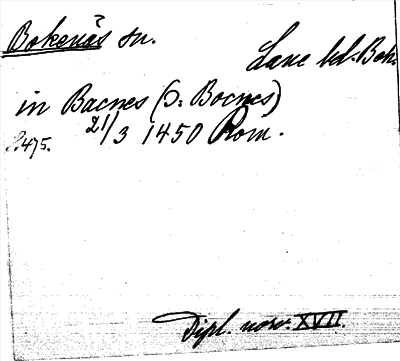 Bokenäs sn.
Lane hd. Boh.
in Bacnes (ɔ: Bocnes)
21/3 1450 Rom.
s. 475.
Dipl. norv. XVII.